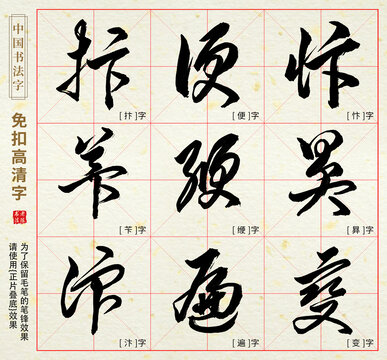 中国书法字
免扣高清字
为了保留毛笔的笔锋效果
请使用[正片叠底]效果
抃 便 忭
[抃]字 [便]字 [忭]字
苄 缏 昪
[苄]字 [缏]字 [昪]字
汴 遍 变
[汴]字 [遍]字 [变]字